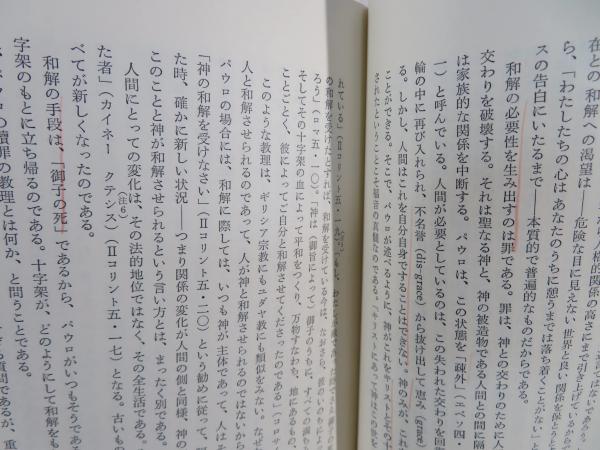 在との和解への渇望は――危険な目に見えない世界と良い関係を保とうとす
ら、「わたしたちの心はあなたのうちに憩うまでは落ち着くことがない」と
スの告白にいたるまで――本質的で普遍的なものだからである。
和解の必要性を生み出すのは罪である。罪は、神との交わりのために人
交わりを破壊する。それは聖なる神と、神の被造物である人間との間に隔
は家族的な関係を中断する。パウロは、この状態を「疎外」（エペソ四・
一）と呼んでいる。人間が必要としているのは、この失われた交わりを回
輪の中に再び入れられ、不名誉（disgrace）から抜け出して恵み（grace）
る。しかし、人間はこれを自分自身ですることはできない。神のみが、これ
ことができる。そこで、パウロが述べるように、神がこれをキリストとその十
されたということこそ福音の真髄なのである。「キリストにあって神はこの世を
れている」（Ⅱコリント五・一九）。
の和解を受けたとすれば、和解を受けている今は、なおさら、彼のいのちによって
ろう」（ロマ五・一〇）。「神は（御旨によって）御子のうちに、すべての満ち
そしてその十字架の血によって平和をつくり、万物すなわち、地にあるもの、
ことごとく、彼によってご自分と和解させてくださったのである」（コロサイ
このような教理は、ギリシア宗教にもユダヤ教にも類似をみない。なぜ
人と和解させられるのであって、人が神と和解させられるのではないから
パウロの場合には、和解に際しては、いつも神が主体であって、人はそ
「神の和解を受けなさい」（Ⅱコリント五・二〇）という勧めに従って、
た時、確かに新しい状況――つまり関係の変化が人間の側と同様、神の
このことと神が和解させられるという言い方とは、まったく別である。
人間にとっての変化は、その法的地位ではなく、その全生活である。
（注6）
た者」（カイネー クティシス）（Ⅱコリント五・一七）となる。古いもの
べてが新しくなったのである。
和解の手段は、「御子の死」であるから、パウロがいつもそうである
字架のもとに立ち帰るのである。十字架が、どのようにして和解をも
の贖罪の教理とは何か、と問うことである。